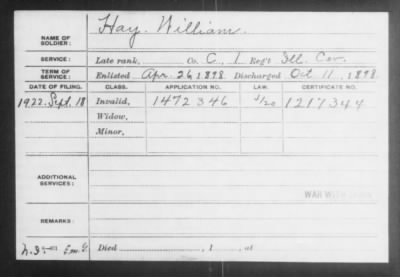 NAME OF SOLDIER: Hay, William.
SERVICE: Late rank, Co. C, 1 Reg't Ill. Cav.
TERM OF SERVICE: Enlisted Apr. 26, 1898. Discharged Oct 11, 1898
DATE OF FILING. CLASS. APPLICATION NO. LAW. CERTIFICATE NO.
1922. Sept. 18 Invalid, 1472346 1217344
Widow,
Minor,
ADDITIONAL SERVICES:
WAR WITH
REMARKS:
Died , 1 , at